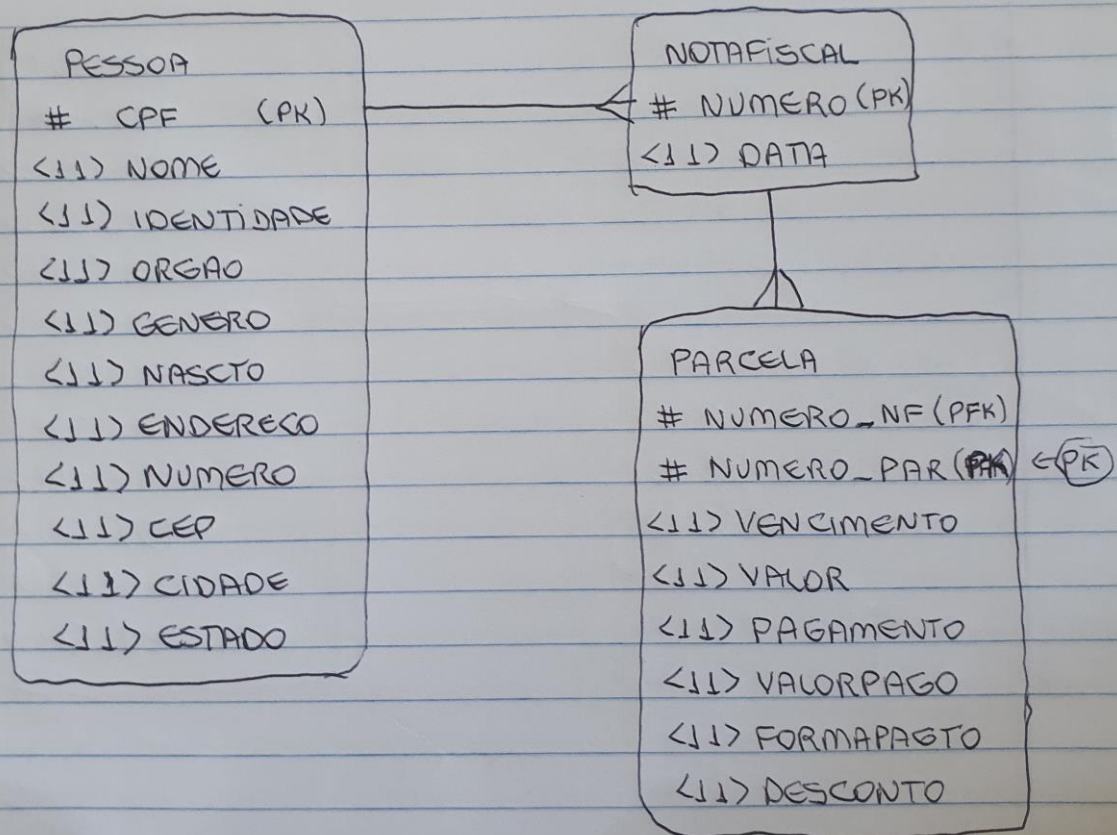 PESSOA
# CPF (PK)
<11> NOME
<11> IDENTIDADE
<11> ORGAO
<11> GENERO
<11> NASCTO
<11> ENDERECO
<11> NUMERO
<11> CEP
<11> CIDADE
<11> ESTADO
NOTAFISCAL
# NUMERO (PK)
<11> DATA
PARCELA
# NUMERO_NF (PFK)
# NUMERO_PAR ( ) ← PK
<11> VENCIMENTO
<11> VALOR
<11> PAGAMENTO
<11> VALORPAGO
<11> FORMAPAGTO
<11> DESCONTO